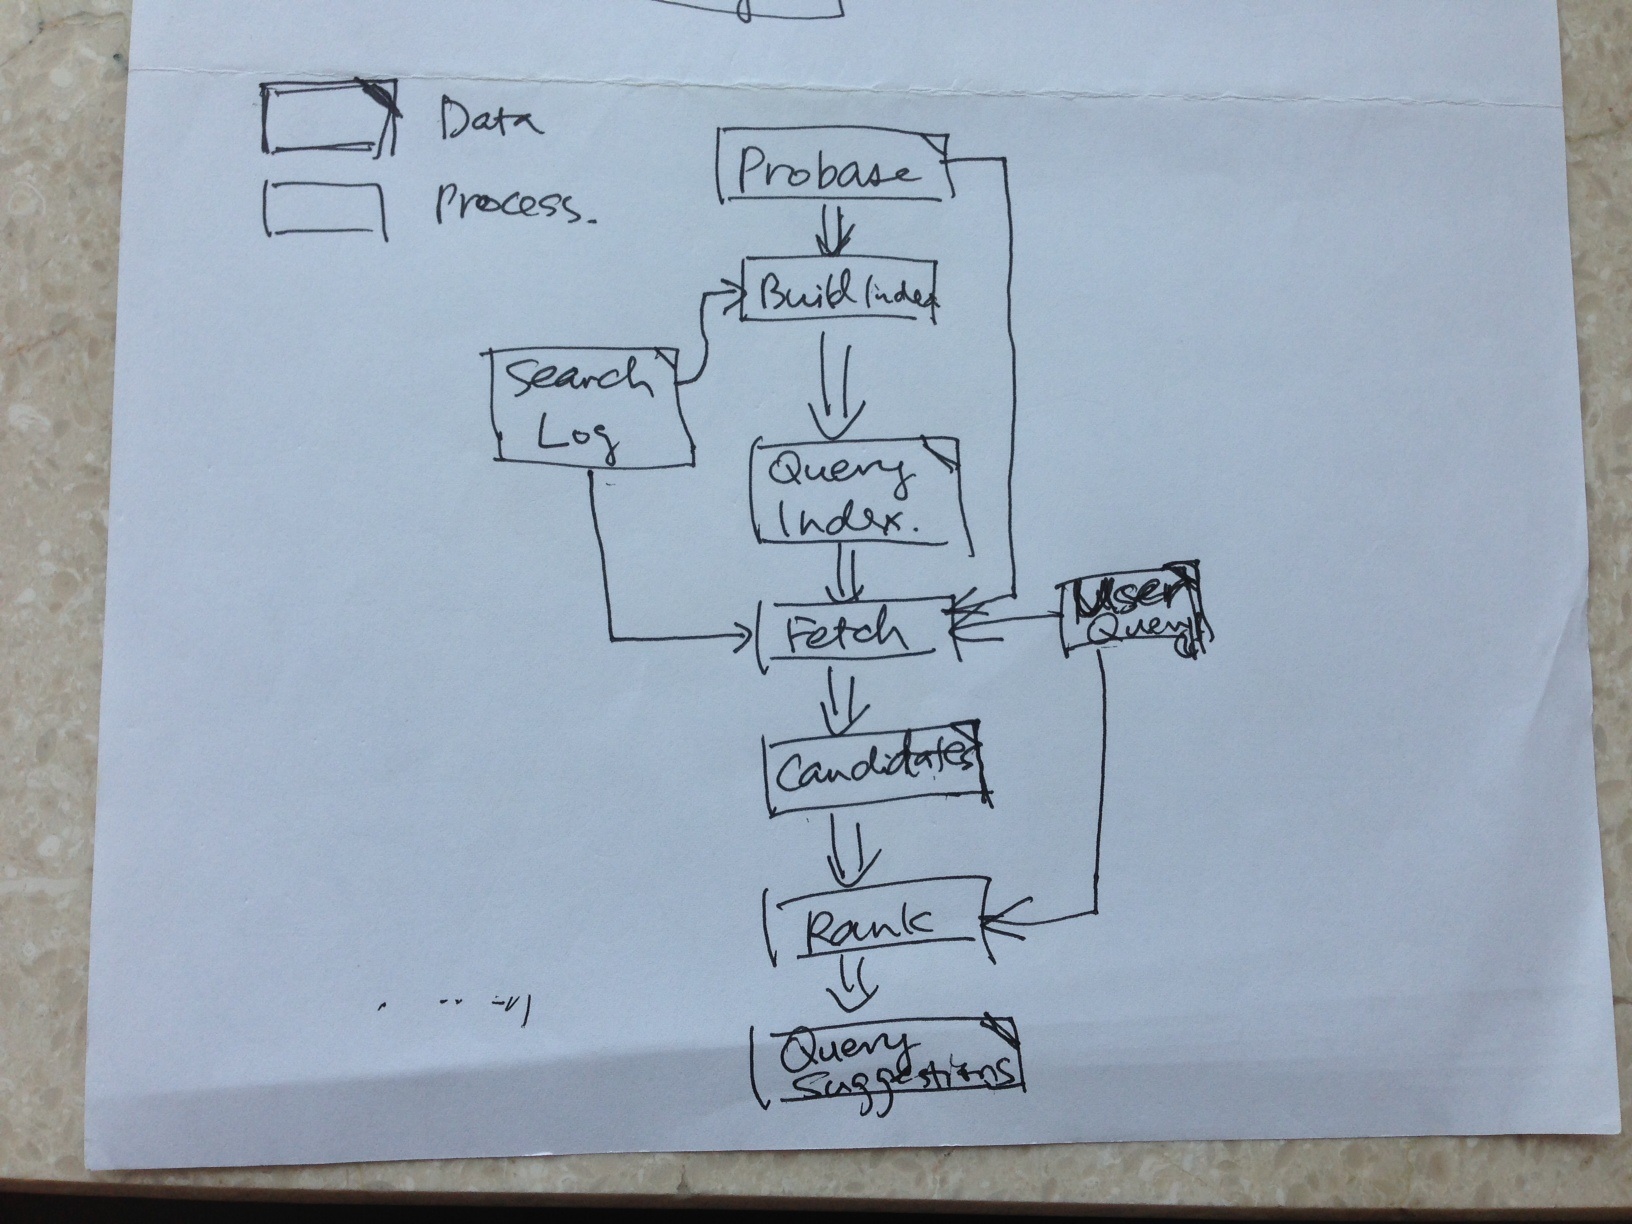 Data
Process.
Probase
Build Index
Search
Log
Query
Index.
Fetch
User
Query
Candidates
Rank
Query
Suggestions